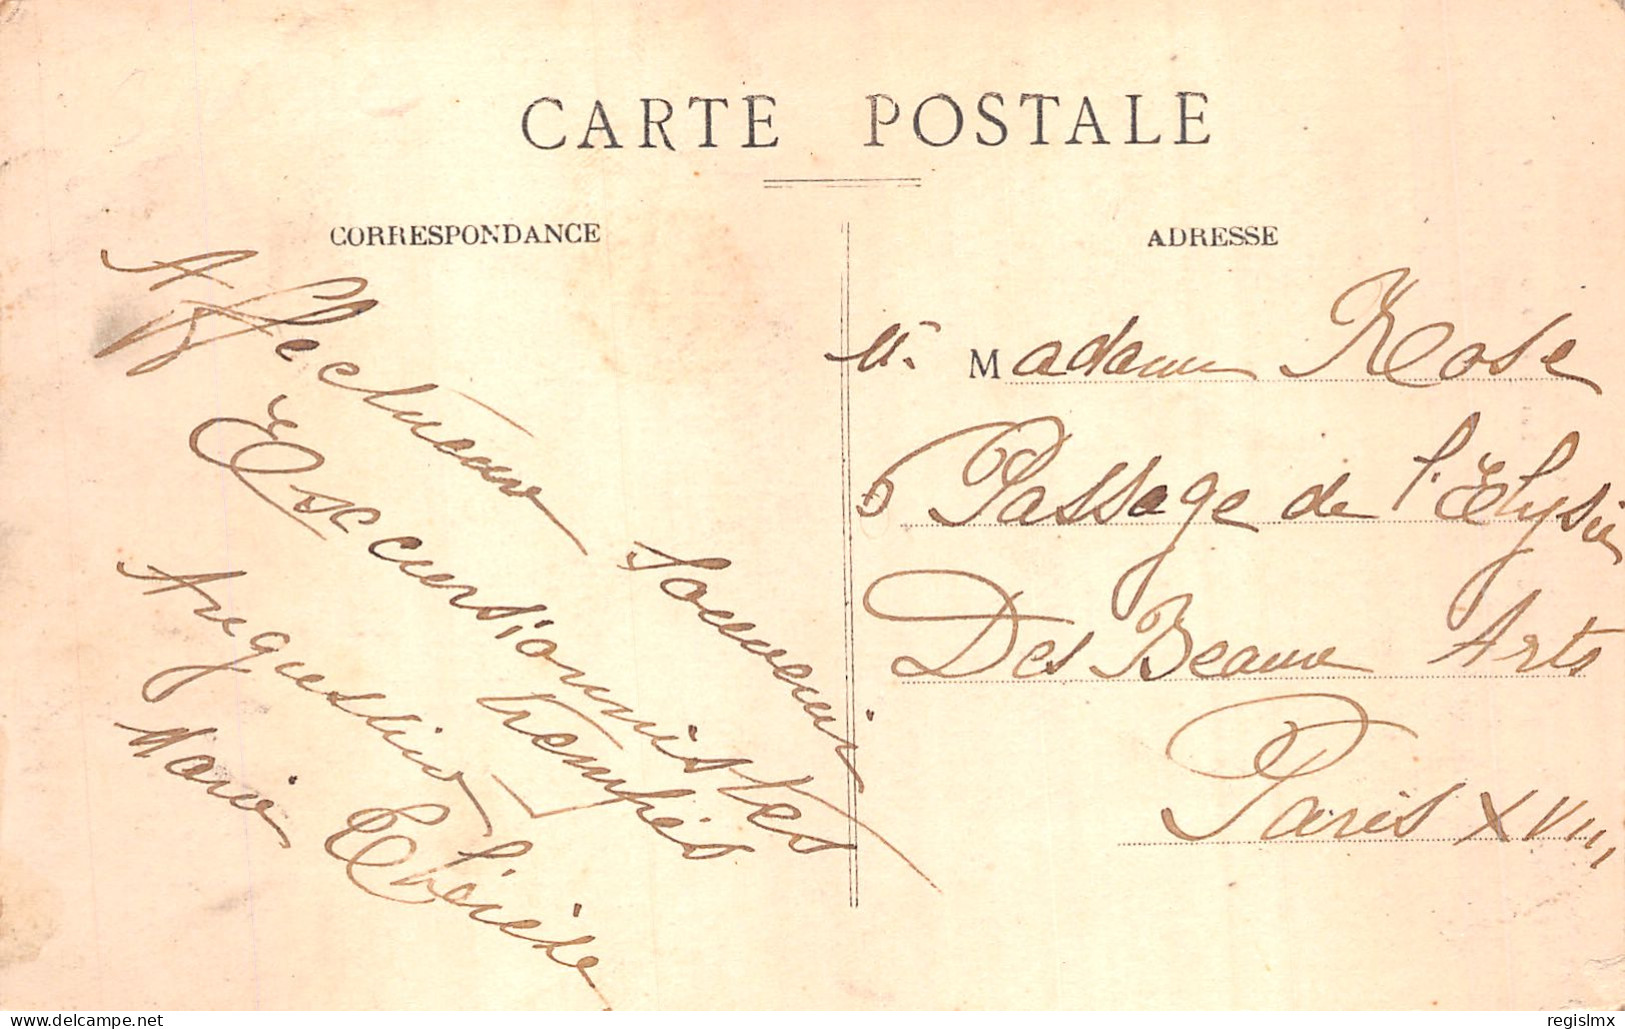 CARTE POSTALE
CORRESPONDANCE
Affectueux Souvenir
Excursionnistes
trempés
Augustine
Marie Thérèse
ADRESSE
Madame Rose
6 Passage de l'Elysée
Des Beaux Arts
Paris XVIII
delcampe.net
regislmx